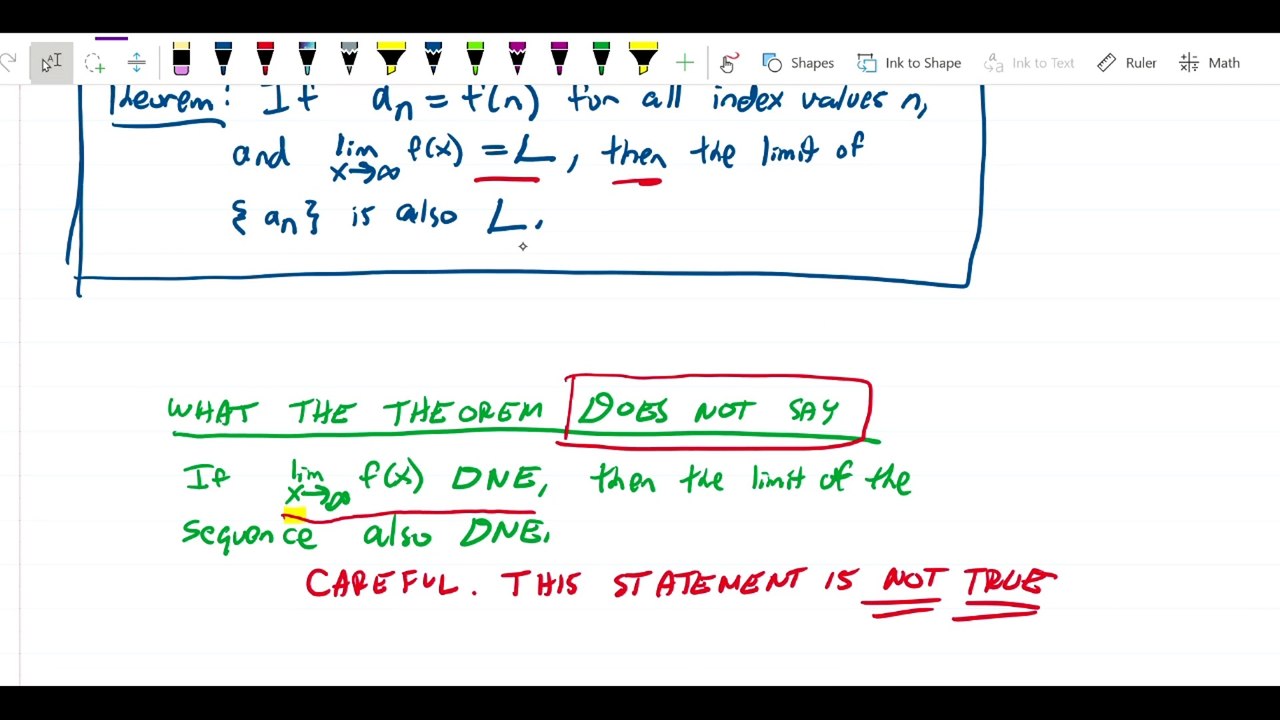 Shapes Ink to Shape Ink to Text Ruler Math
Theorem: If aₙ = f(n) for all index values n,
and lim x→∞ f(x) = L, then the limit of
{aₙ} is also L.
WHAT THE THEOREM DOES NOT SAY
If lim x→∞ f(x) DNE, then the limit of the
sequence also DNE.
CAREFUL. THIS STATEMENT IS NOT TRUE